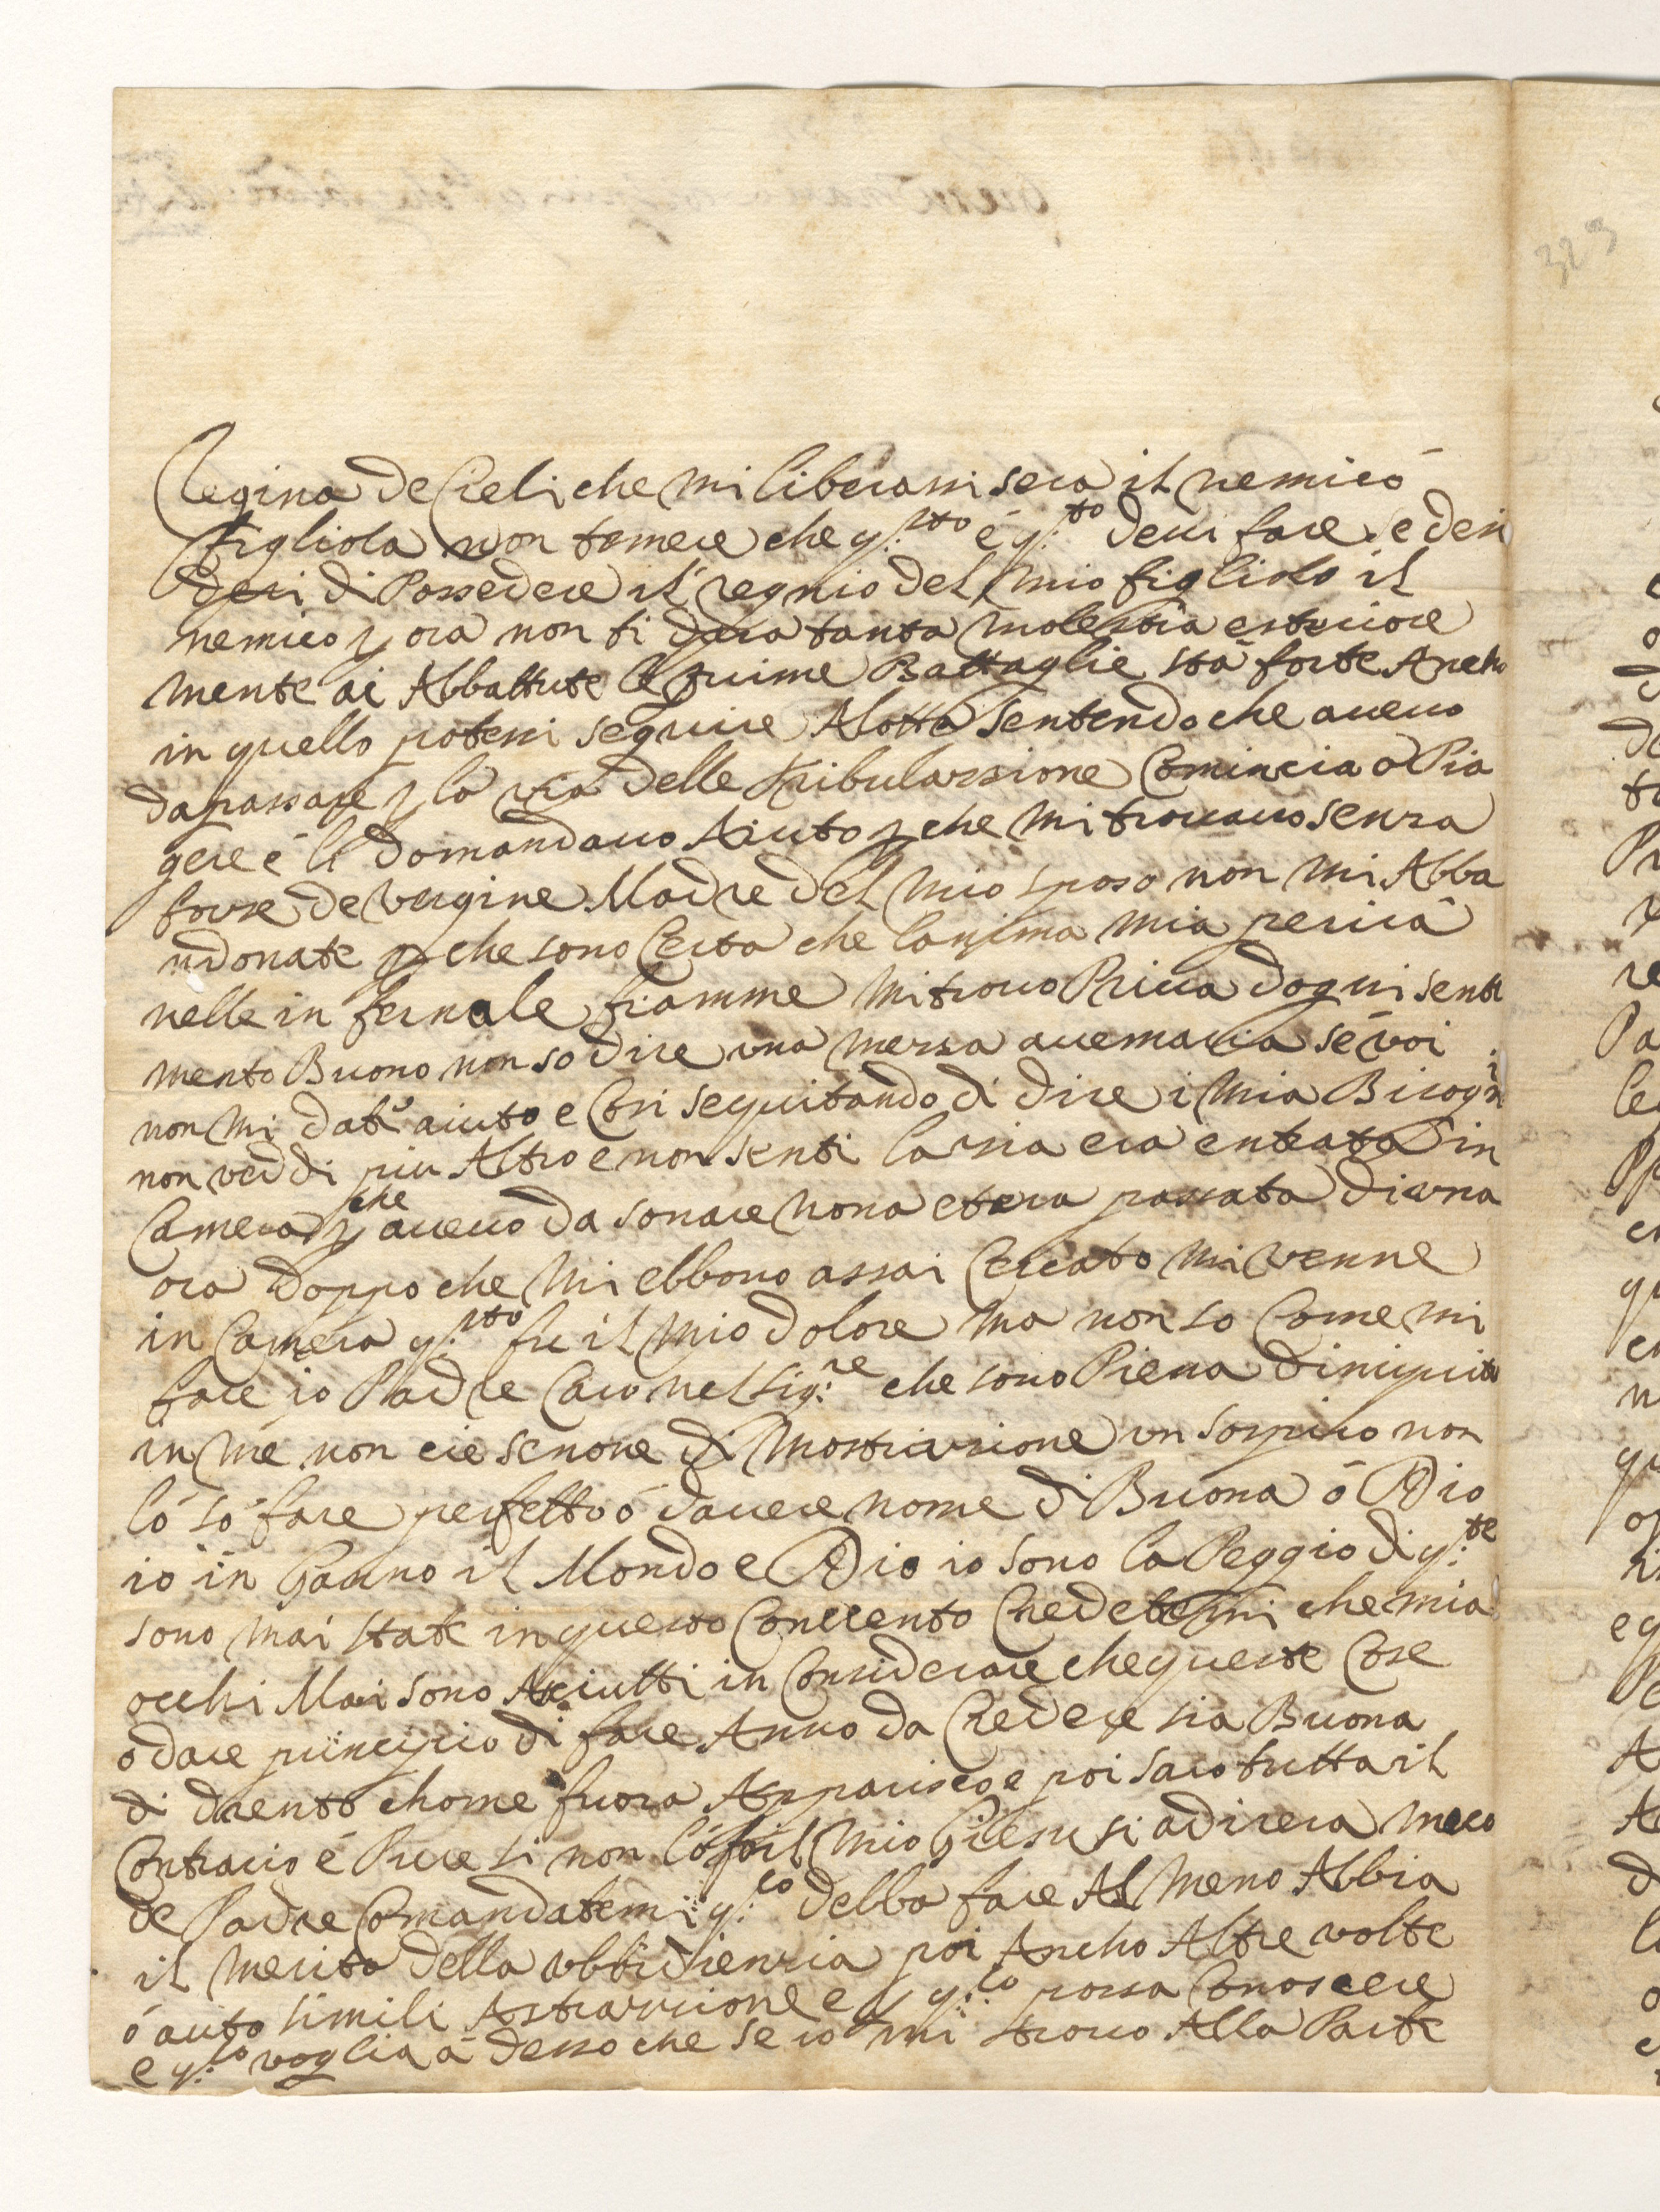 323
Regina de Cieli che mi liberassi sera il nemico
figliola non temere che q:sto é q:to devi fare se desi
deri di Possedere il regnio del mio figliolo il
nemico p ora non ti dara tanta molestia esteriore
mente ai Abbattute le prime Battaglie sta forte Ancho
in quello potessi seguire Alotta sentendo che aveuo
da passare p la via delle tribulassione Comincia a Pia
gere é li domandauo Aiuto p che mi trouauo senza
forse de vergine Madre del mio sposo non mi Abba
ndonate p che sono Certa che lanima mia perirà
nelle in fernale fiamme mi trouo Priua dogni senti
mento Buono non so dire una mezza auemaria sé voi
non mi date aiuto e Cosi seguitando di dire i mia Bisogni
non veddi piu Altro e non senti la zia era entrata in
Camera p che aueuo da sonare nona et era passata di una
ora doppo che mi ebbono assai Cercato mi venne
in Camera q:sto fu il mio dolore ma non so Come mi
fare io Padre Caro nel sig:re che sono Piena diniquita
in me non cie senone di mostriusione un sospiro non
ló só fare perfetto ó dauere nome di Buona ó Dio
io in Ganno il Mondo e Dio io sono la Peggio di q:te
sono mai state in questo Conuento Credetemi che mia
occhi Mai sono Asciutti in Considerare che queste Cose
o dare principio di fare Anno da Credere sia Buona
di drento chome fuora Apparisco e poi saro tutta il
Contrario é Pure si non ló fo il mio Giesu si adirera meco
de Padre Comandatemi q:lo debba fare Al meno Abbia
il merito della ubbidienzia poi Ancho Altre volte
ó auto simili Astrazzione e p q:lo possa Conoscere
e q:lo voglia á desso che se io mi trouo Alla Parte